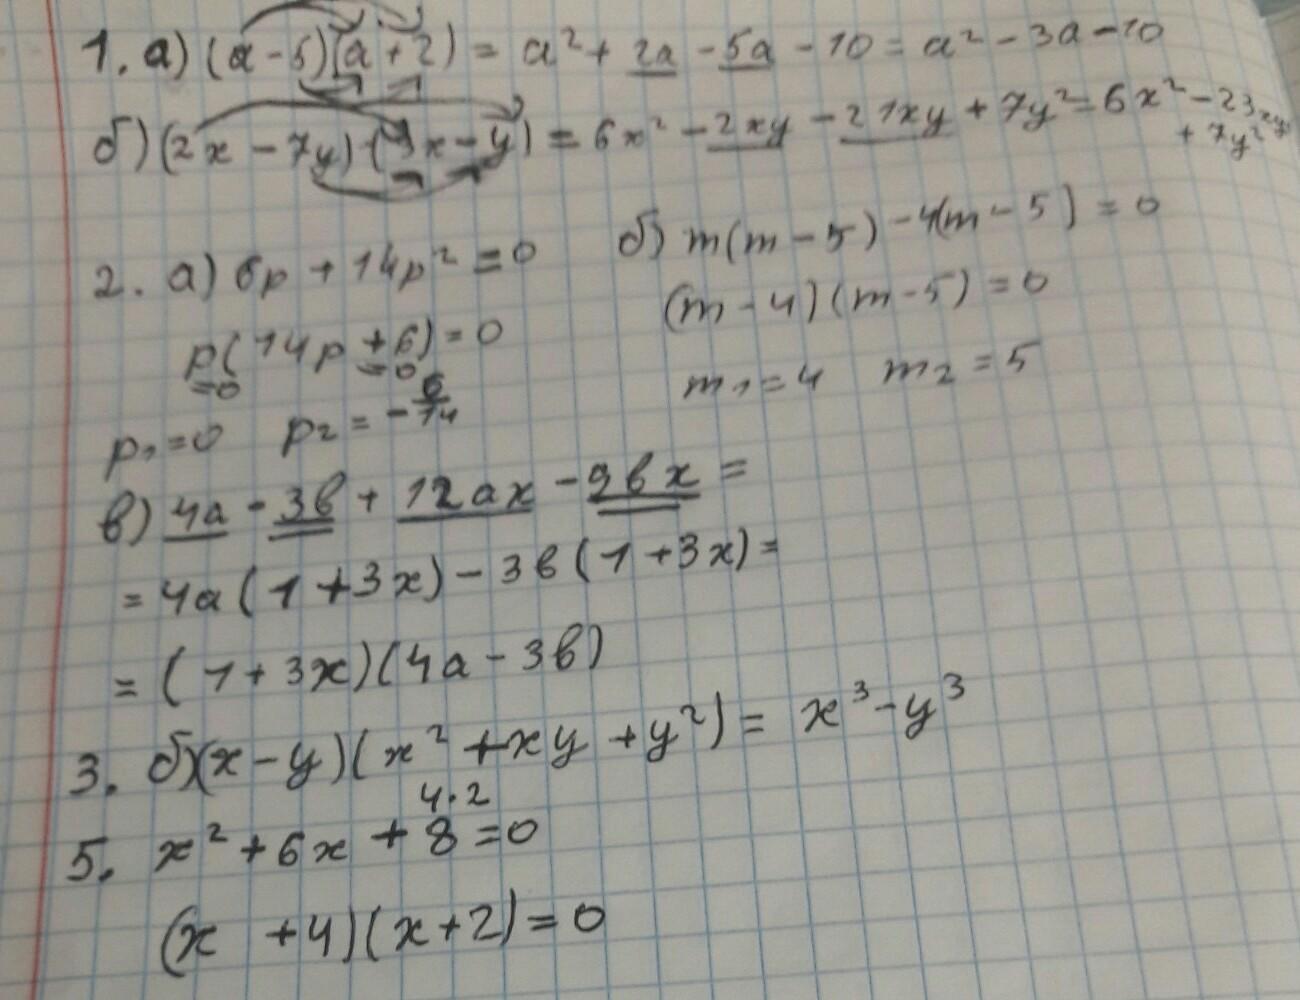 1. а) (a - 5)(a + 2) = a² + 2a - 5a - 10 = a² - 3a - 10
б) (2x - 7y) (3x - y) = 6x² - 2xy - 21xy + 7y² = 6x² - 23xy
+ 7y²
2. а) 6p + 14p² = 0
p(14p + 6) = 0
=0 =0
p₁ = 0 p₂ = - 6/14
б) m(m - 5) - 4(m - 5) = 0
(m - 4)(m - 5) = 0
m₁ = 4 m₂ = 5
в) 4a - 3b + 12ax - 9bx =
= 4a(1 + 3x) - 3b(1 + 3x) =
= (1 + 3x)(4a - 3b)
3. б)(x - y)(x² + xy + y²) = x³ - y³
4·2
5. x² + 6x + 8 = 0
(x + 4)(x + 2) = 0